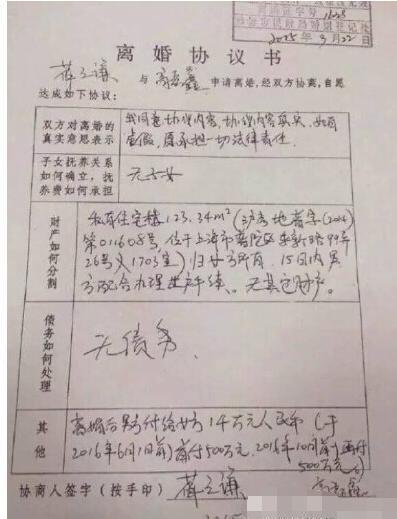 2015年9月22日
离婚协议书
与 申请离婚,经双方协商,自愿
达成如下协议:
双方对离婚的
真实意思表示
我同意协议内容,协议内容真实,如有
虚假,愿承担一切法律责任
子女抚养关系
如何确立,抚
养费如何承担
无子女
财产如何分割
私有住宅楼123.34m²(沪房地普字(2014)
第011608号,位于上海市普陀区 路99弄
26号 1703室)归女方所有,15日内男
方配合办理过户手续。无其它财产。
债务如何处理
无债务.
其他
离婚后男方付给女方1千万元人民币(于
2016年6月1日前)首付500万元,2016年10月前 付
500万元
协商人签字(按手印)